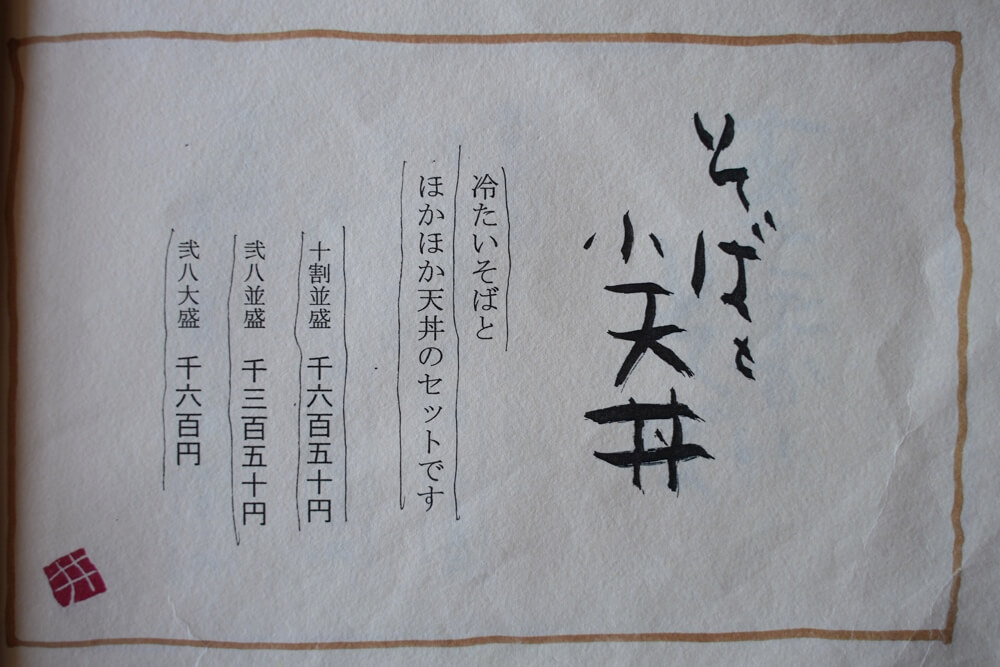 そばと
小天丼
冷たいそばと
ほかほか天丼のセットです
十割並盛 千六百五十円
弐八並盛 千三百五十円
弐八大盛 千六百円